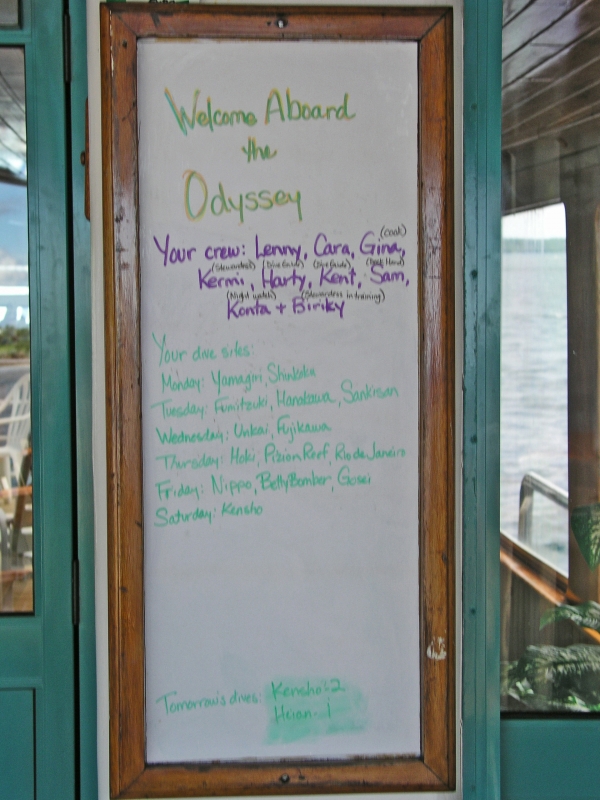 Welcome Aboard
the
Odyssey
(cook)
Your crew: Lenny, Cara, Gina,
(Stewardess) (Dive Guide) (Dive Guide) (Deck Hand)
Kermi, Harty, Kent, Sam,
(Night watch) (Stewardess in training)
Konta + Biriky
Your dive sites:
Monday: Yamagiri, Shinkoku
Tuesday: Fumitzuki, Hanakawa, Sankisan
Wednesday: Unkai, Fujikawa
Thursday: Hoki, Pizion Reef, Rio de Janeiro
Friday: Nippo, Betty Bomber, Gosei
Saturday: Kensho
Tomorrow's dives: Kensho - 2
Heian - 1